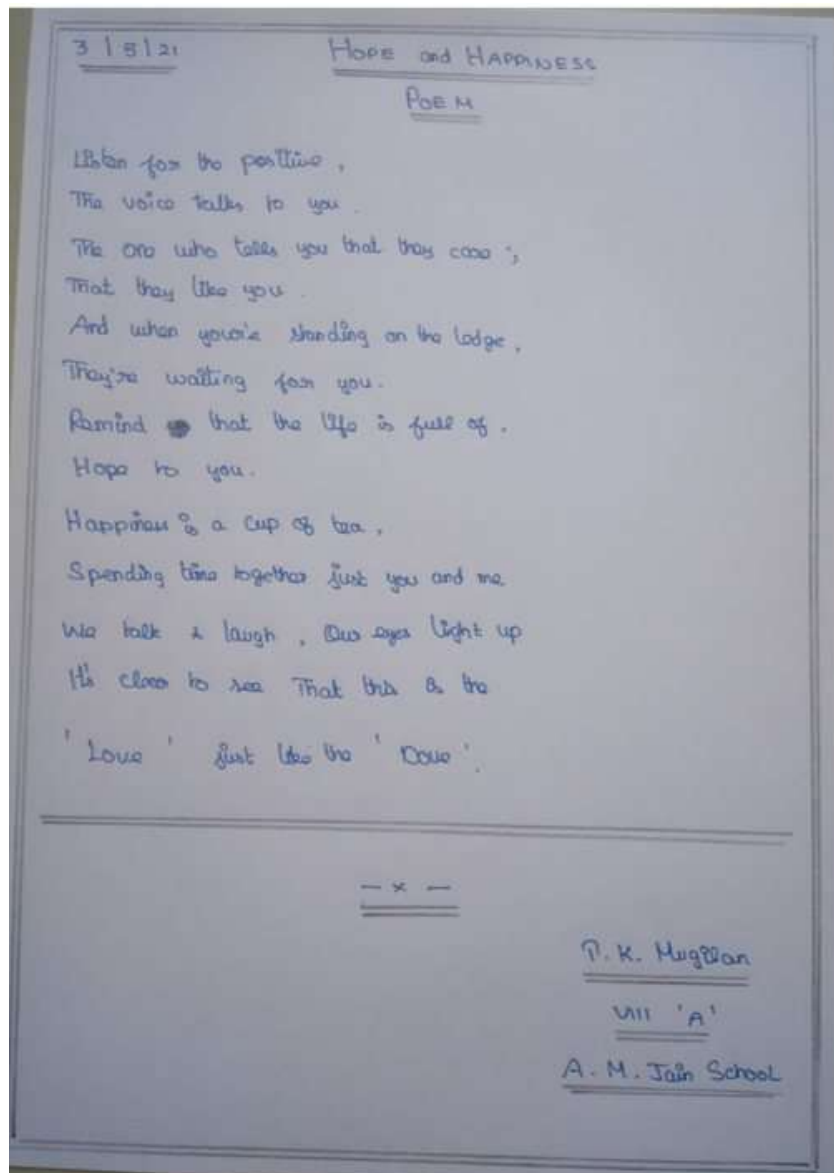 3 | 5 | 21
HOPE and HAPPINESS
POEM
Listen for the positive,
The voice talks to you.
The one who tells you that they care ;,
That they like you.
And when you're standing on the ledge,
They're waiting for you.
Remind that the life is full of.
Hope to you.
Happiness is a cup of tea,
Spending time together just you and me
We talk & laugh, Our eyes light up
It's clear to see That this is the
'Love' just like the 'Dove'.
— x —
P. K. Mugilan
VIII 'A'
A. M. Jain School